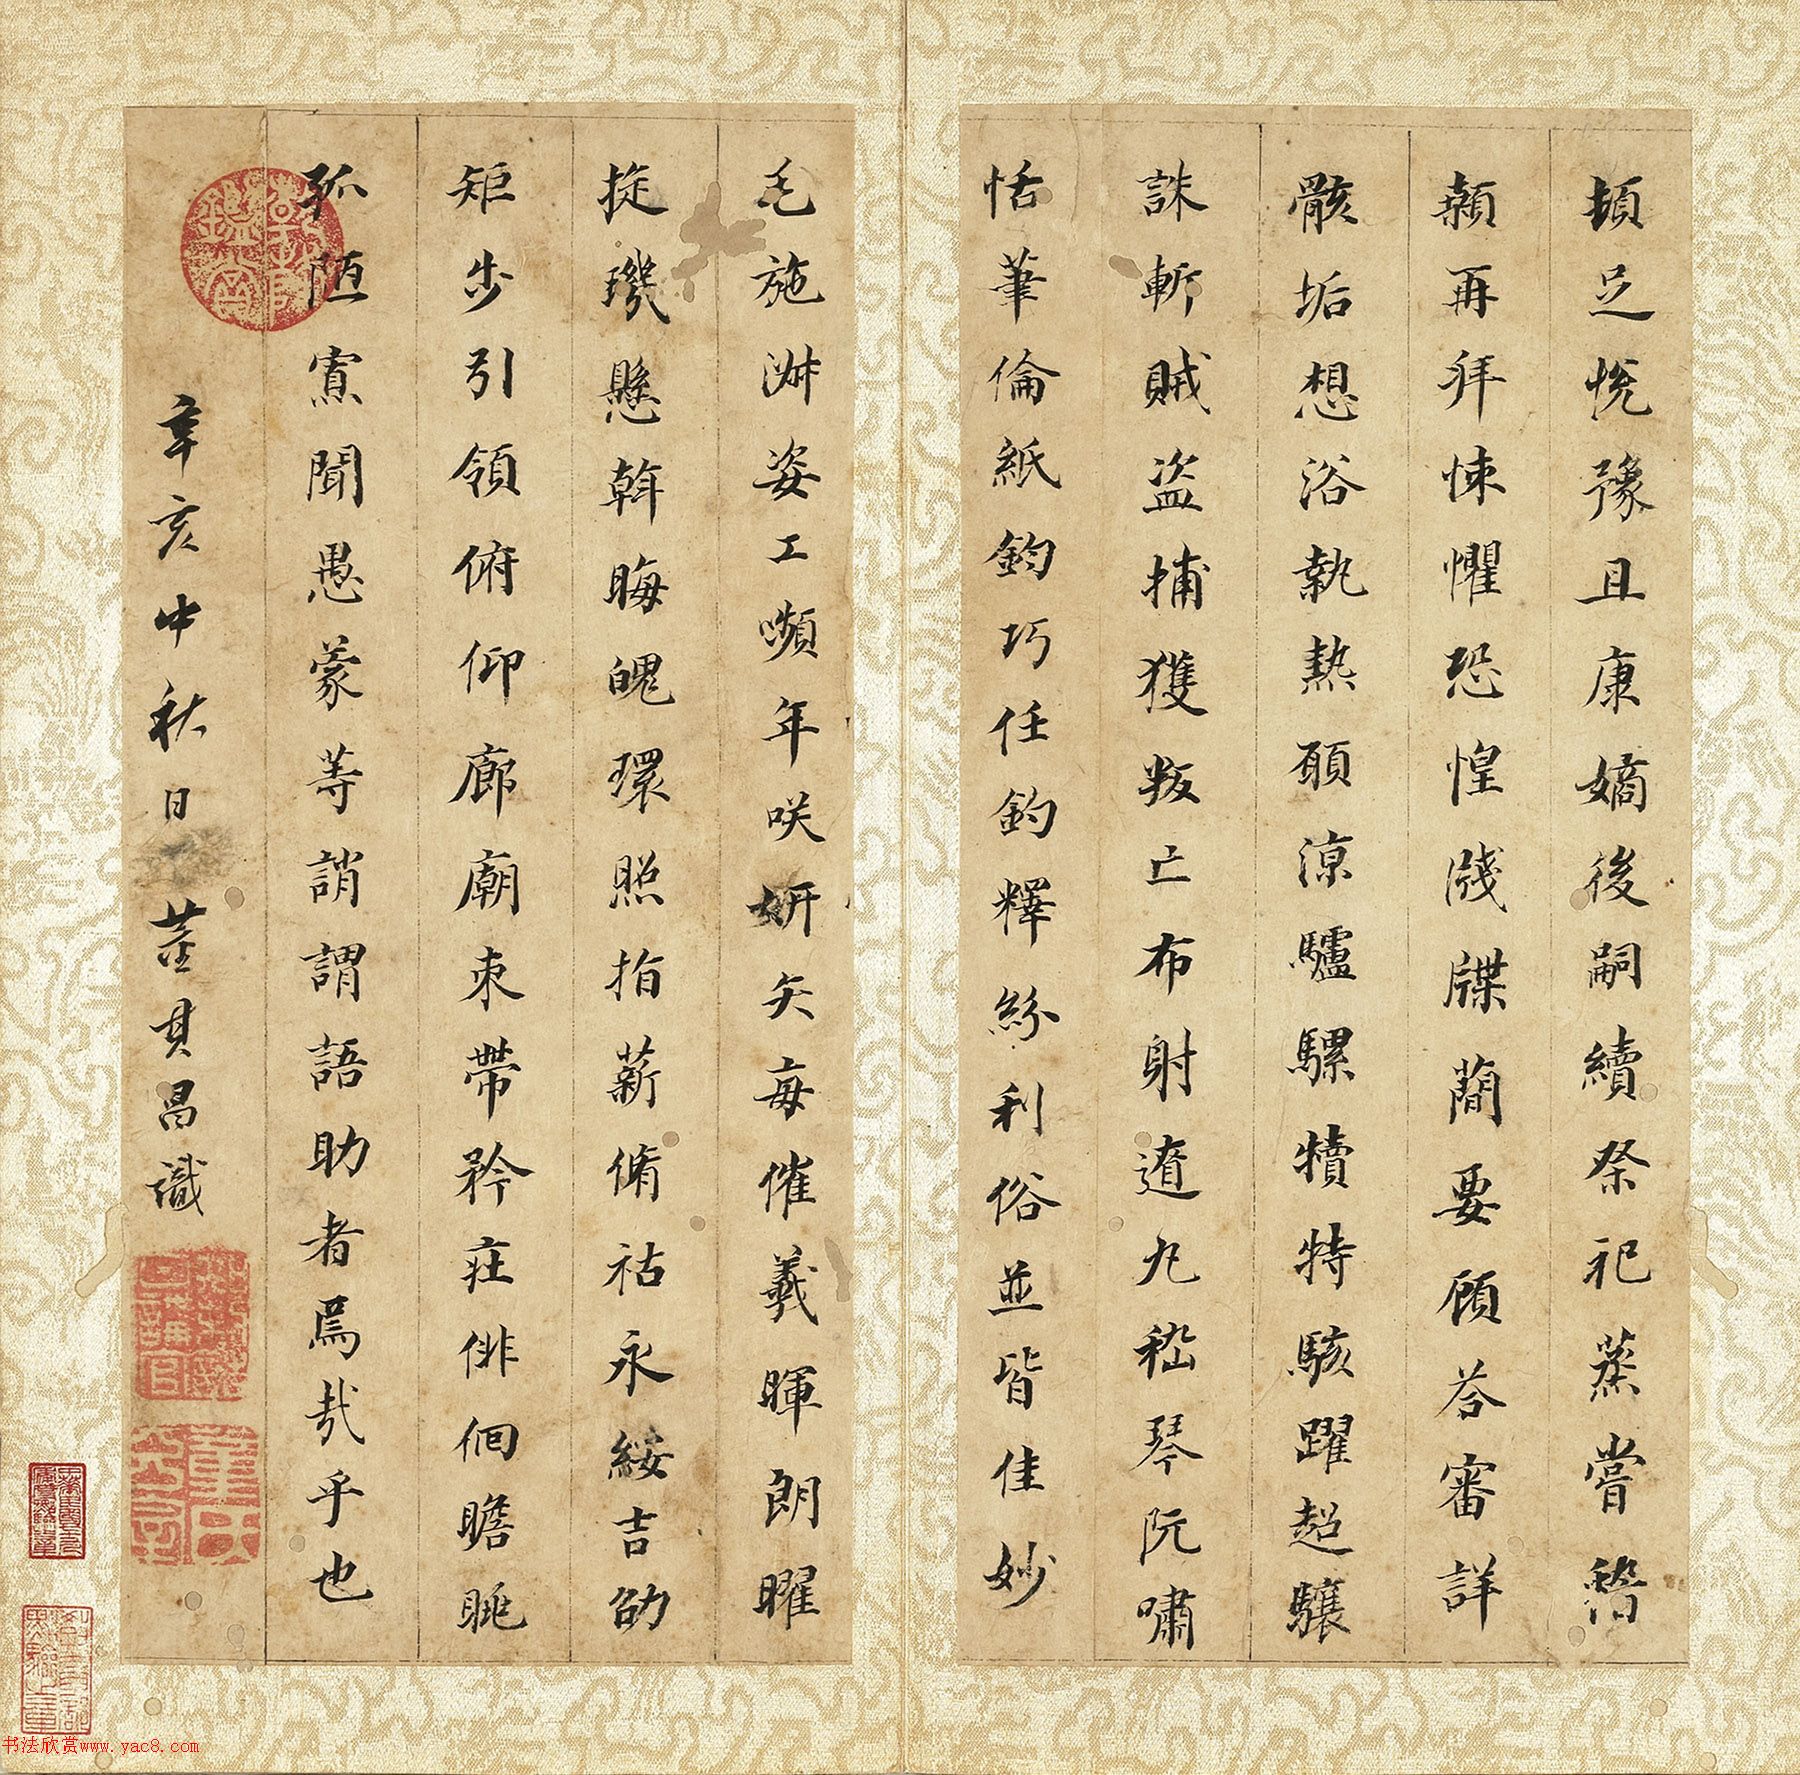 頓足悅豫且康嫡後嗣續祭祀蒸嘗稽
顙再拜悚懼恐惶牋牒蕳要顧荅審詳
骸垢想浴執熱願涼驢騾犢特駭躍超驤
誅斬賊盜捕獲叛亡布射遼丸嵇琴阮嘯
恬筆倫紙鈞巧任釣釋紛利俗並皆佳妙
毛施淑姿工嚬年咲妍矢每催羲暉朗曜
㨁璣懸斡晦魄環照指薪脩祜永綏吉劭
矩步引領俯仰廊廟束帶矜莊俳佪瞻眺
孤陋寡聞愚蒙等誚謂語助者焉哉乎也
辛亥中秋日董其昌識
书法欣赏www.yac8.com